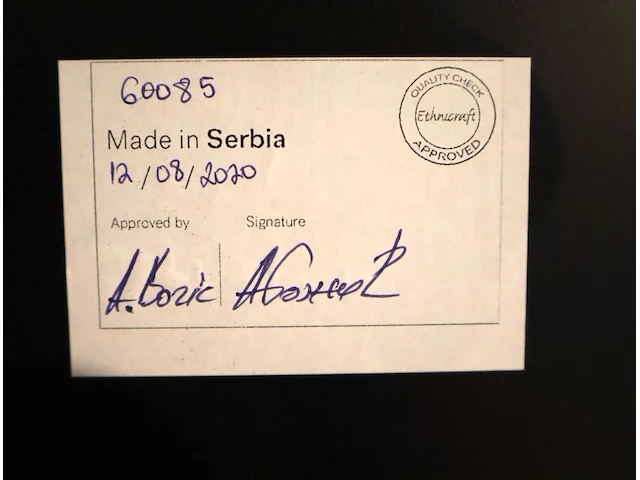 60085
QUALITY CHECK
Ethnicraft
APPROVED
Made in Serbia
12/08/2020
Approved by Signature
A.